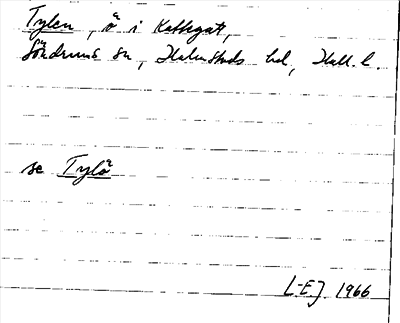 Tylen, ö i Kattegat,
Söndrums sn, Halmstads hd, Hall. l.
se Tylö
L-EJ. 1966